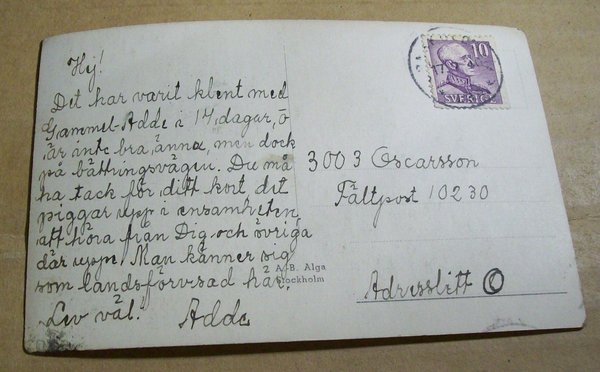 Hej!
Det har varit klent med
Gammel-Adde i 14 dagar, o
är inte bra, änna, men dock
på bättringsvägen. Du må
ha tack för ditt kort det
piggar upp i ensamheten
att höra från Dig och övriga
där uppe. Man känner sig
som landsförvisad här.
Lev väl. Adde
10
SVERIGE
3003 Oscarsson
Fältpost 10230
Adresslitt C
A.-B. Alga
Stockholm